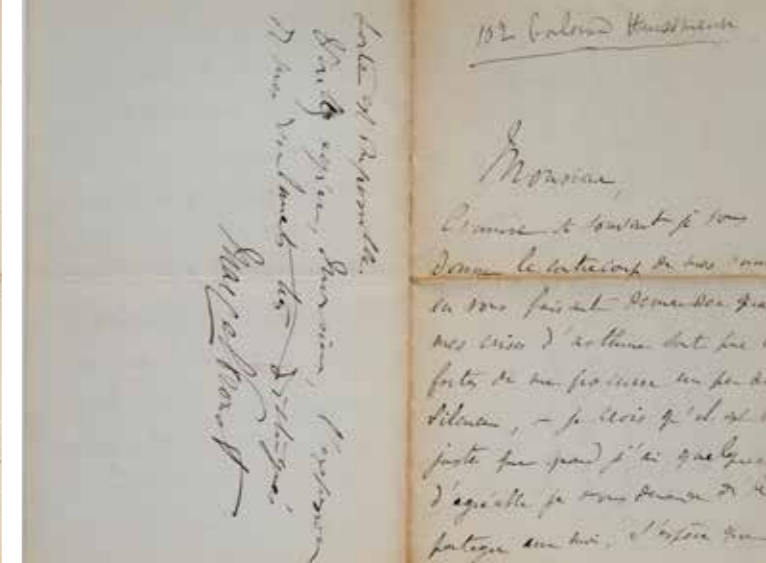 102 Boulevard Haussmann
Monsieur,
Comme et souvent je vous
donne le contrecoup de mes
en vous faisant demander
mes crises d'asthme sont
fortes de me procurer un peu de
silence, – je crois qu'il est
juste que quand j'ai quelque
d'agréable je vous demande de
partager avec moi. J'espère que
forte est impossible.
Veuillez agréer, Monsieur, l'expression
de mes sentiments très distingués
Marcel Proust